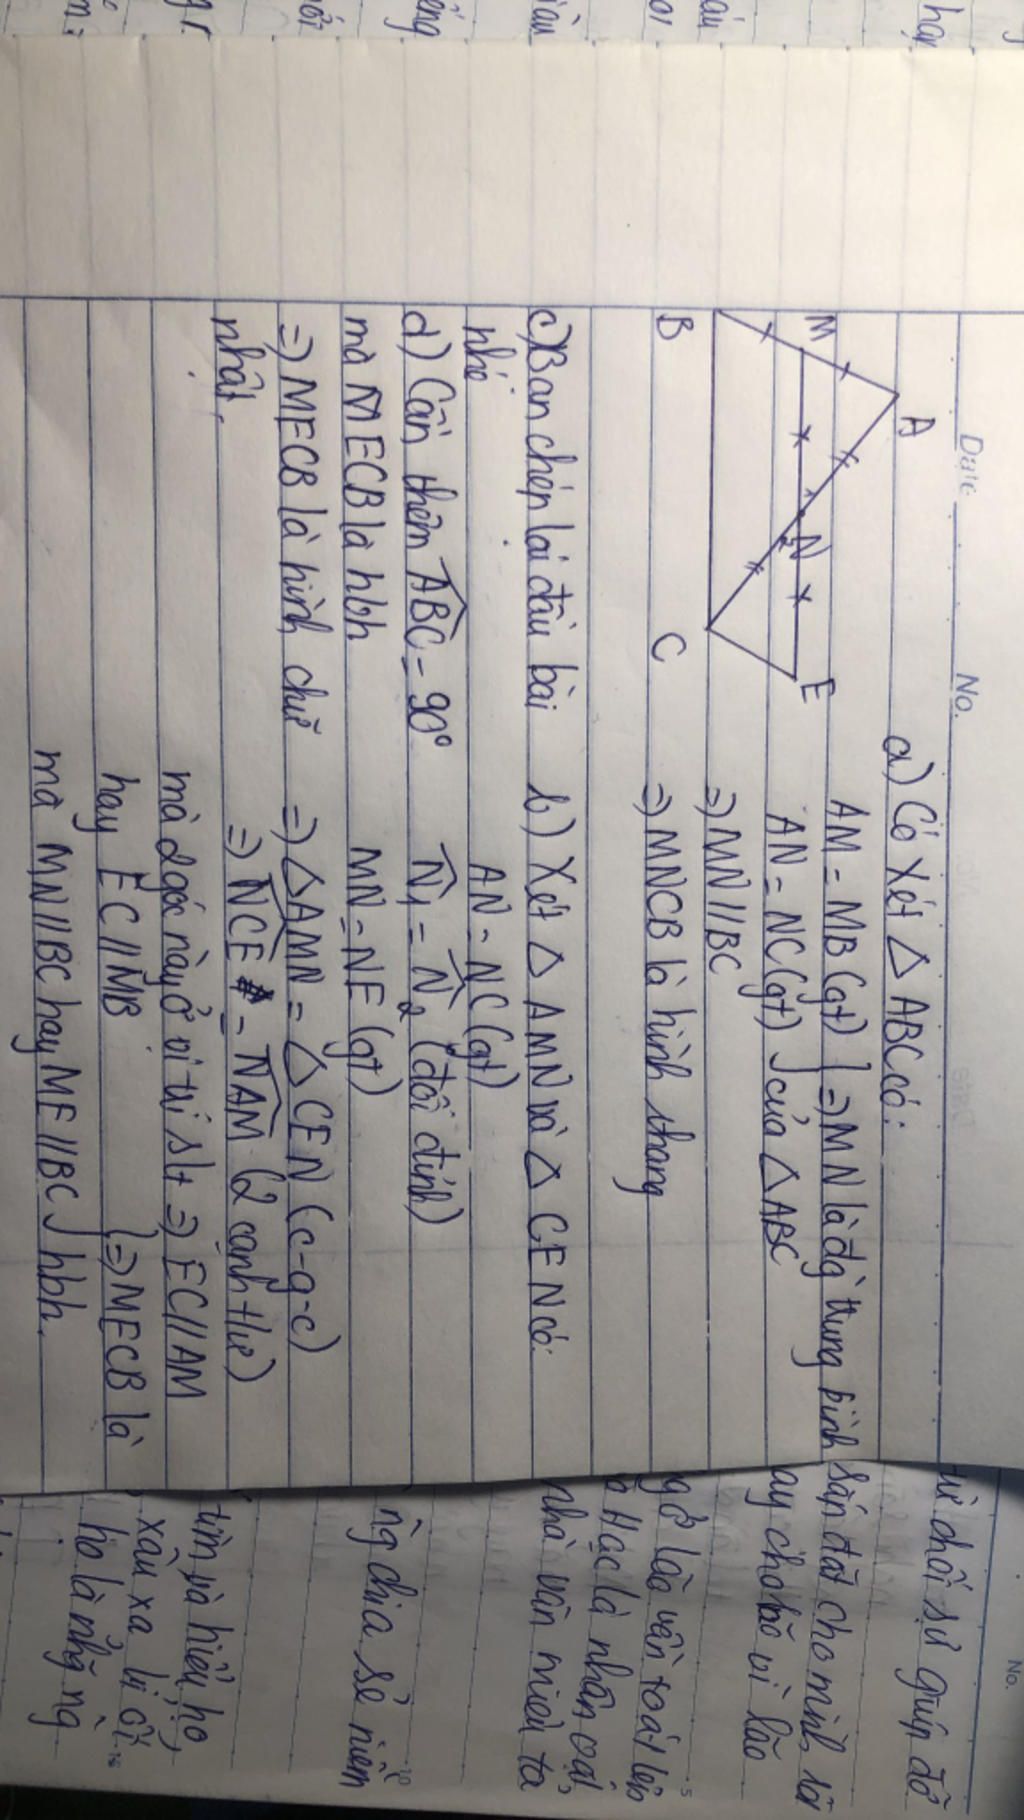 Date No.
A
M
N
2
E
B
C
a) Có Xét △ ABC có:
AM = MB (gt) } => MN là đg` trung bình
AN = NC (gt) } của △ ABC
=> MN // BC
=> MNCB là hình thang
b) Xét △ AMN và △ CEN có:
AN = NC (gt)
N̂₁ = N̂₂ (đối đỉnh)
MN = NE (gt)
=> △ AMN = △ CEN (c-g-c)
=> NCE = NAM (2 cạnh t/ư)
mà 2 góc này ở vị trí slt => EC // AM
hay EC // MB } => MECB là
mà MN // BC hay ME // BC } hbh.
c) Bạn chép lại đầu bài
nhé
d) Cần thêm ABC = 90°
mà MECB là hbh
=> MECB là hình chữ
nhật.
No.
từ chối sự giúp đỡ
sắn đất cho mình, lời
ay cho lão vì lão
lão vẫn toát lên
Hạc là nhân vật
nhà văn miêu tả
chia sẻ niềm
tìm và hiểu họ
xấu xa
họ là những ng
5
10